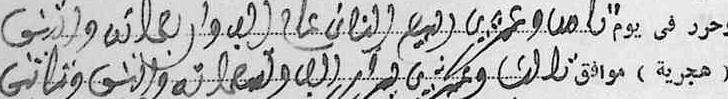 وحرر فى يوم ثامن وعشرين ربيع الثانى عام الف واربعمائة واثنين
( هجرية ) موافق ثالث وعشرين فبراير الف وتسعمائة واثنين وثمانين